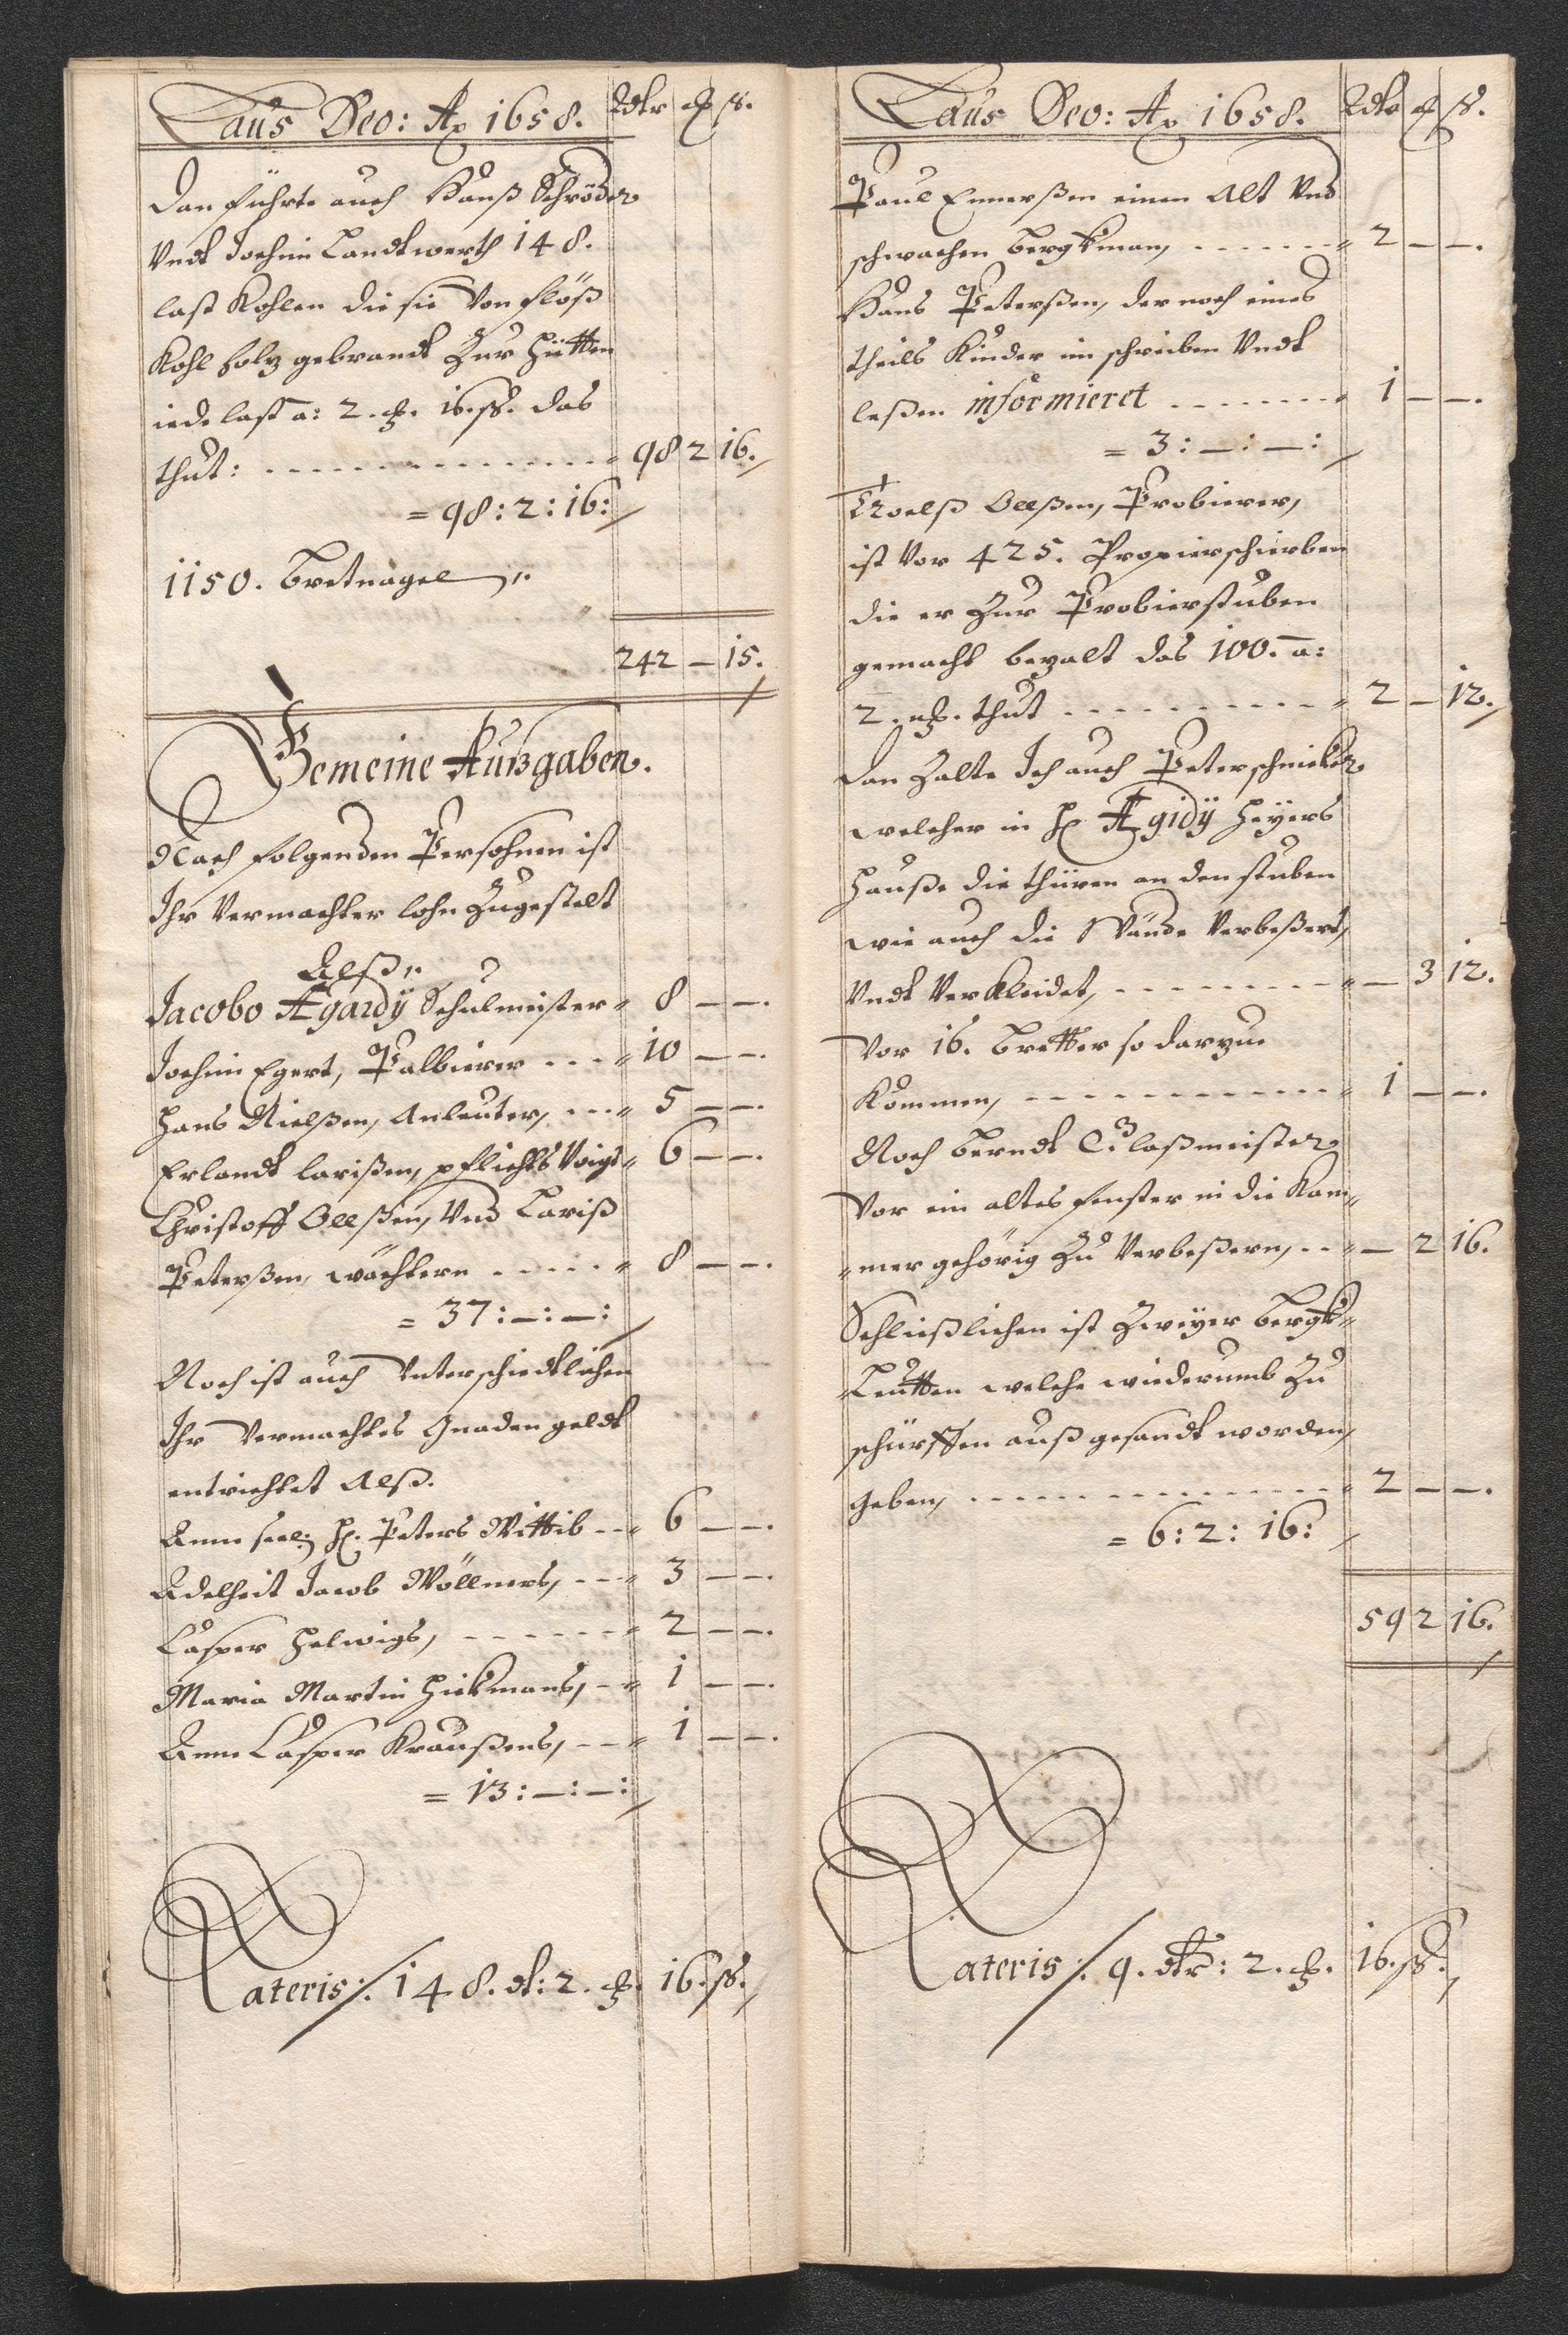 Laus Deo: Ao 1658. Rdlr ort ß.
Dan führte auch Hanß Schröder
Undt Jochim Landtwerth 148.
last Kohlen die sie Von flöß
Kohl holz gebrandt Zur Hütten
iede last a: 2. ort. 16. ß. das
thut: 98 2 16.
= 98: 2: 16:
1150. Bretnagel
242 — 15.
Gemeine Außgaben.
Nach folgenden Persohnen ist
Ihr Vermachter lohn Zugestelt
Alß
Jacobo Agardÿ Schulmeister 8 — —.
Jochim Egert, Palbierer 10 — —.
Hans Nielßen, Anleuter, 5 — —.
Erlandt larißen, pflichts Voigt 6 — —.
Christoff Ollßen, Und Lariß
Peterßen, wächtern 8 — —.
= 37: —: —:
Noch ist auch Unterschiedtlichen
Ihr Vermachtes Gnaden geldt
entrichtet Alß.
Anna seel: H. Peters Wittib 6 — —.
Adelheit Jacob Möllners, 3 — —.
Casper Helwigs, 2 — —.
Maria Martin Hickmans, 1 — —.
Anna Casper Kraußens, 1 — —.
= 13: —: —:
Lateris:/. 148. dl: 2. ort. 16. ß.
Laus Deo: Ao 1658. Rdlr ort ß.
Paul Ennerßen einen Alt Und
schwachen Bergkman, 2 — —.
Hans Peterßen, der noch eines
theils Kinder im schreiben Undt
leßen informieret 1 — —.
= 3: —: —:
Troelß Ollßen, Probierer,
ist Vor 425. Propierscherben
die er Zur Probierstuben
gemacht bezalt das 100. a:
2. ort. thut 2 — 12.
Dan Zalte Ich auch Peter schnicker
welcher in H: Ægidÿ Heÿers
Hauße die thüren an den stuben
wie auch die Wände Verbeßert,
Undt Verkleidet, — 3 12.
Vor 16. Bretter so darzue
Kommen, 1 — —.
Noch Berndt Glaßmeister
Vor ein altes fenster in die Kam-
-mer gehörig Zu Verbeßern, — 2 16.
Schließlichen ist Zweÿer Bergk-
-Leutten welche wiederumb Zu
schürffen auß gesandt worden,
Geben, 2 — —.
= 6: 2: 16:
59 2 16.
Lateris:/. 9. dlr: 2. ort. 16. ß.